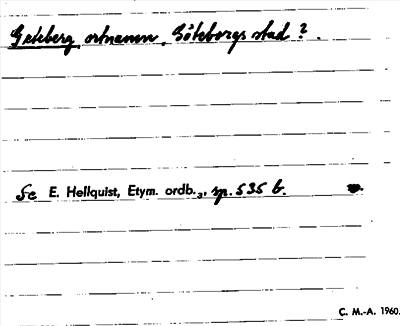 Geteberg, ortnamn, Göteborgs stad?.
Se E. Hellquist, Etym. ordb.₃, sp. 535 b.
C. M.-A. 1960.